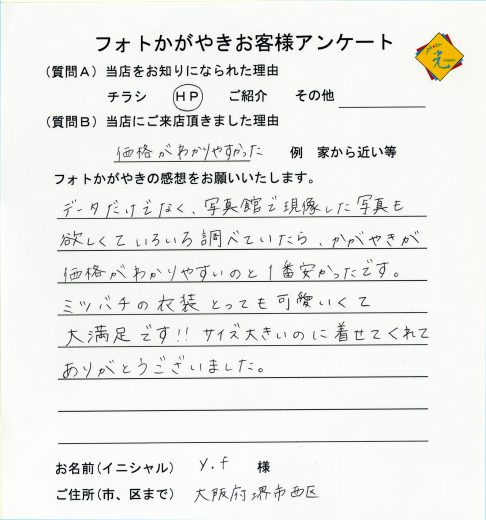 フォトかがやきお客様アンケート
(質問A)当店をお知りになられた理由
チラシ HP ご紹介 その他
(質問B)当店にご来店頂きました理由
価格がわかりやすかった 例 家から近い等
フォトかがやきの感想をお願いいたします。
データだけでなく、写真館で現像した写真も
欲しくていろいろ調べていたら、かがやきが
価格がわかりやすいのと1番安かったです。
ミツバチの衣装とっても可愛いくて
大満足です!!サイズ大きいのに着せてくれて
ありがとうございました。
お名前(イニシャル) y.f 様
ご住所(市、区まで) 大阪府堺市西区